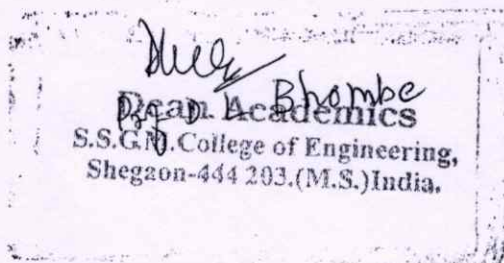 Prof D. L. Bhombe
Dean Academics
S.S.G.M.College of Engineering,
Shegaon-444 203.(M.S.)India.